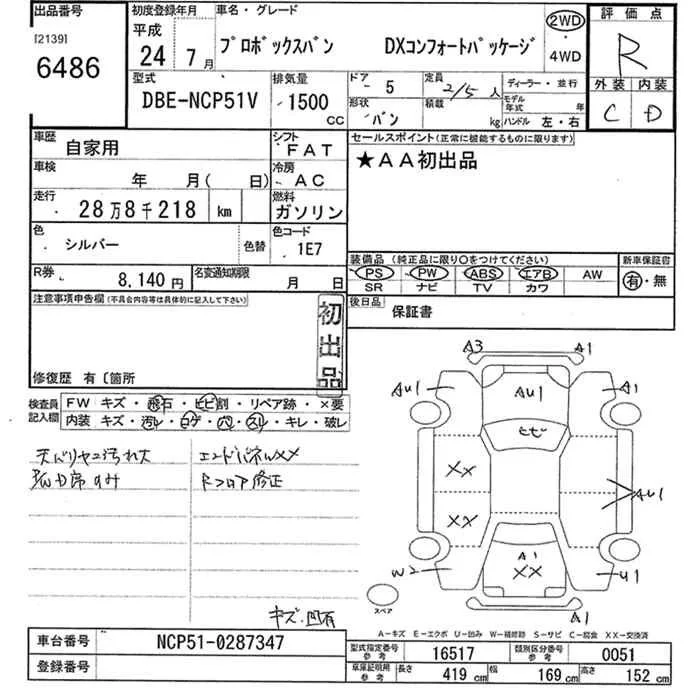 出品番号
[2139]
6486
初度登録年月
平成
24年 7月
車名・グレード
プロボックスバン DXコンフォートパッケージ
2WD
4WD
評価点
R
外装 内装
C D
型式
DBE-NCP51V
排気量
1500
CC
ドア
5
形状
バン
定員
2/5人
積載
kg
ディーラー・並行
モデル年式 年
ハンドル 左・右
車歴
自家用
シフト
FAT
車検
年 月( 日)
冷房
AC
走行
28万8千218 km
燃料
ガソリン
色
シルバー
色替
色コード
1E7
R券
8,140円
名変通知期限
月 日
セールスポイント(正常に機能するものに限ります)
★AA初出品
装備品(純正品に限り○をつけてください)
PS PW ABS エアB AW
SR ナビ TV カワ
新車保証書
有・無
後日品
保証書
注意事項申告欄(不具合内容等は具体的に記入して下さい)
初出品
修復歴 有〔箇所
検査員記入欄
FW キズ・飛石・ヒビ割・リペア跡・×要
内装 キズ・汚レ・コゲ・穴・スレ・キレ・破レ
天バリヤニ汚れ大
エンドパネルXX
Rフロア修正
キズ・凹有
A3 A1
AU1 AU1 A1
ヒビ
XX
AU1
XX
A1
XX
W2 U1
A1
スペア
A-キズ E-エクボ U-凹み W-補修跡 S-サビ C-腐食 XX-交換済
車台番号
NCP51-0287347
登録番号
型式指定番号 参考
16517
類別区分番号 参考
0051
車庫証明用 参考
長さ 419 cm 幅 169 cm 高さ 152 cm